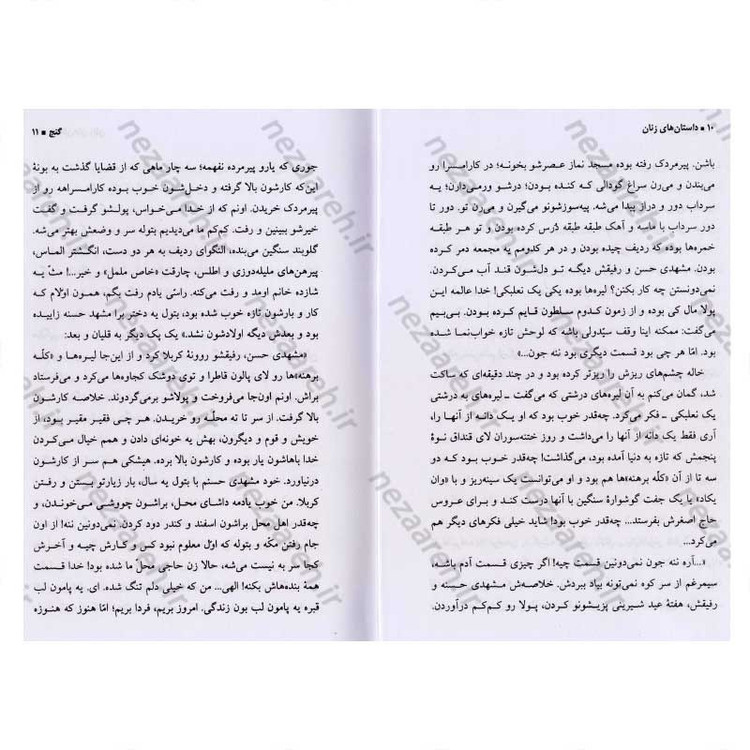 ۱۰ ▪ داستان‌های زنان
باشن. پیرمردک رفته بوده مسجد نماز عصرشو بخونه؛ در کارامسرا رو
می‌بندن و می‌رن سراغ گودالی که کنده بودن؛ درشو ورمی‌دارن؛ یه
سرداب دور و دراز پیدا می‌شه. پیه‌سوزشونو می‌گیرن و می‌رن تو. دور تا
دور سرداب با ماسه و آهک طبقه طبقه دُرس کرده بودن و تو هر طبقه
خمره‌ها بوده که ردیف چیده بودن و در هر کدومم یه مجمعه دمر کرده
بودن. مشهدی حسن و رفیقش دیگه تو دل‌شون قند آب می‌کردن.
نمی‌دونستن چه کار بکنن؟ لیره‌ها بوده یکی یک نعلبکی! خدا عالمه این
پولا مال کی بوده و از زمون کدوم سلطون قایم کرده بودن. بی‌بیم
می‌گفت: ممکنه اینا وقف سیّدولی باشه که لوحش تازه خواب‌نما شده
بود. امّا هر چی بود قسمت دیگری بود ننه جون...»
خاله چشم‌های ریزش را ریزتر کرده بود و در چند دقیقه‌ای که ساکت
شد، گمان می‌کنم به آن لیره‌های درشتی که می‌گفت ـ لیره‌های به درشتی
یک نعلبکی ـ فکر می‌کرد. چه‌قدر خوب بود که او یک دانه از آنها را،
آری فقط یک دانه از آنها را می‌داشت و روز ختنه‌سوران لای قنداق نوهٔ
پنجمش که تازه به دنیا آمده بود، می‌گذاشت! چه‌قدر خوب بود که دو
سه تا از آن «کلّه برهنه»ها هم بود و او می‌توانست یک سینه‌ریز و با «وان
یکاد» یا یک جفت گوشوارهٔ سنگین با آنها درست کند و برای عروس
حاج اصغرش بفرستد... چه‌قدر خوب بود! شاید خیلی فکرهای دیگر هم
می‌کرد...
«...آره ننه جون نمی‌دونین قسمت چیه! اگر چیزی قسمت آدم باشه،
سیمرغم از سر کوه نمی‌تونه بیاد ببردش. خلاصه‌ش مشهدی حسنه و
رفیقش، هفتهٔ عید شیرینی پزیشونو کردن، پولا رو کم‌کم درآوردن.
گنج ▪ ۱۱
جوری که یارو پیرمرده نفهمه؛ سه چار ماهی که از قضایا گذشت به بونهٔ
این‌که کارشون بالا گرفته و دخل‌شون خوب بوده کارامسراهه رو از
پیرمردک خریدن. اونم که از خدا می‌خواس، پولشو گرفت و گفت
خیرشو ببینین و رفت. کم‌کم ما می‌دیدیم بتوله سر و وضعش بهتر می‌شه.
گلوبند سنگین می‌بنده، النگوای ردیف به هر دو دست، انگشتر الماس،
پیرهن‌های ملیله‌دوزی و اطلس، چارقت «خاص ململ» و خیر...! مثّ یه
شازده خانم اومد و رفت می‌کنه. راسّی یادم رفت بگم، همون اوّلام که
کار و بارشون تازه خوب شده بود، بتول یه دختر برا مشهد حسنه زاییده
بود و بعدش دیگه اولادشون نشد.» یک پک دیگر به قلیان و بعد:
«مشهدی حسن، رفیقشو روونهٔ کربلا کرد و از این‌جا لیره‌ها و «کلّه
برهنه»ها رو لای پالون قاطرا و توی دوشک کجاوه‌ها می‌کرد و می‌فرستاد
براش. اونم اون‌جا می‌فروخت و پولاشو برمی‌گردوند. خلاصه کارشون
بالا گرفت. از سر تا ته محلّه رو خریدن. هر چی فقیر مقیر بود، از
خویش و قوم و دیگرون، بهش یه خونه‌ای دادن و همم خیال می‌کردن
خدا باهاشون یار بوده و کارشون بالا برده. هیشکی هم سر از کارشون
درنیاورد. خود مشهدی حسنم با بتول یه سال، بار زیارتو بستن و رفتن
کربلا. من خوب یادمه داشای محل، براشون چووشی می‌خوندن، و
چه‌قدر اهل محل براشون اسفند و کندر دود کردن. نمی‌دونین ننه! از اون
جام رفتن مکّه و بتوله که اوّل معلوم نبود کس و کارش چیه و آخرش
کجا سر به نیست می‌شه، حالا زن حاجی محلّ ما شده بود! خدا قسمت
همهٔ بنده‌هاش بکنه! الهی... من که خیلی دلم تنگ شده. ای... یه پامون لب
قبره یه پامون لب بون زندگی. امروز بریم، فردا بریم؛ امّا هنوز که هنوزه
nezaareh.ir